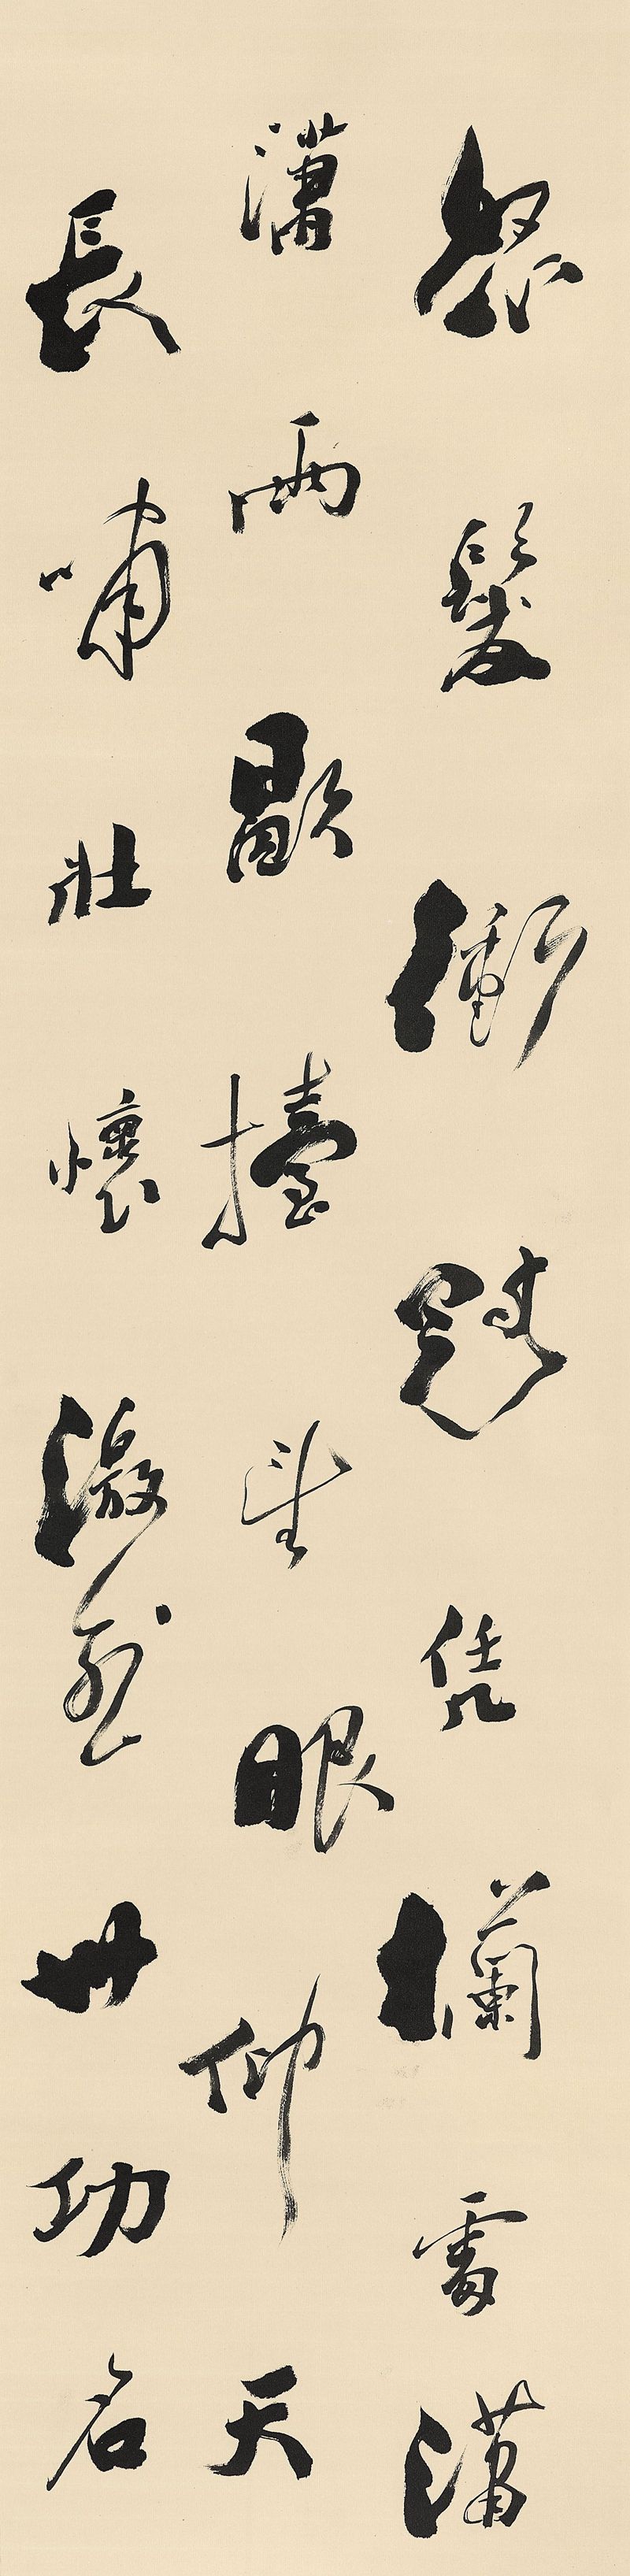 怒髮衝冠凭欄處瀟
瀟雨歇擡望眼仰天
長嘯壯懷激烈卅功名